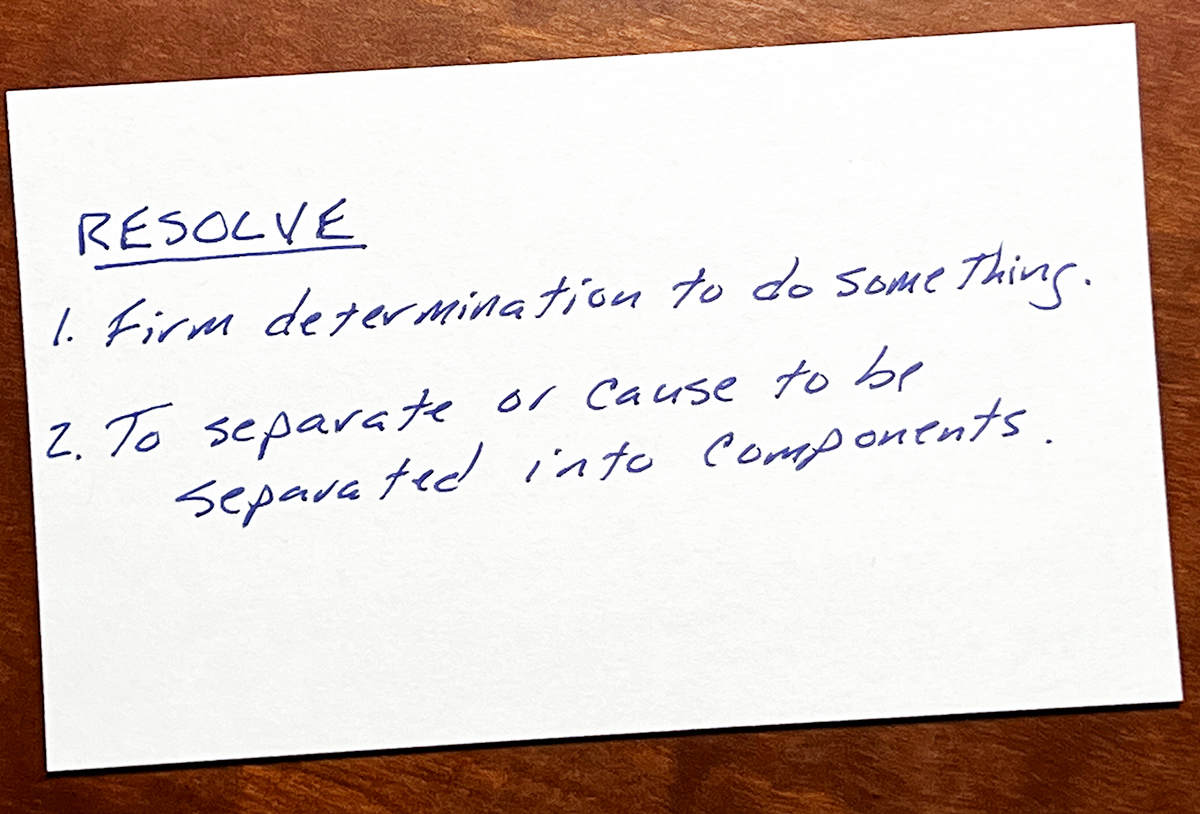 RESOLVE
1. Firm determination to do something.
2. To separate or cause to be
separated into components.